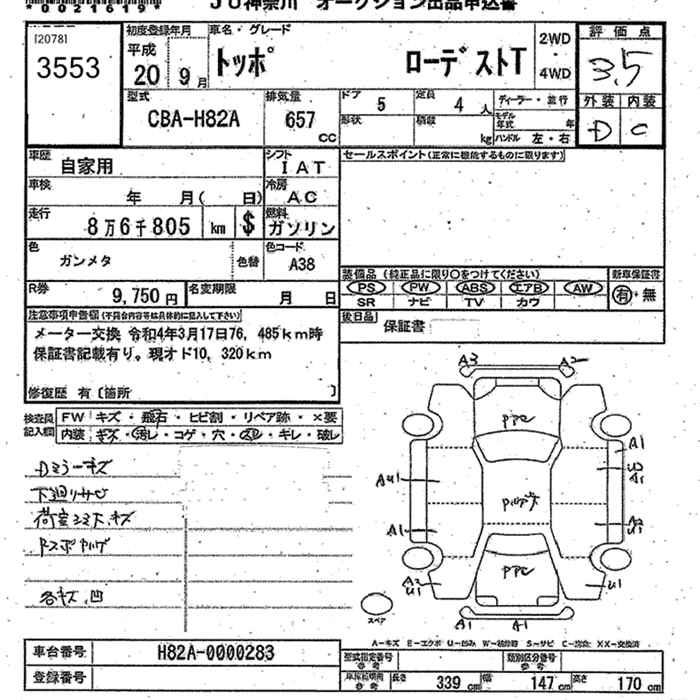 *00216191*
JU神奈川 オークション出品申込書
[2078]
3553
初度登録年月
平成
20年 9月
車名・グレード
トッポ ローデストT
2WD
・
4WD
評価点
3.5
外装 内装
D C
型式
CBA-H82A
排気量
657
CC
ドア 5
定員 4人
ディーラー・並行
形状
積載 kg
モデル年式 年
ハンドル 左・右
車歴
自家用
シフト
IAT
セールスポイント(正常に機能するものに限ります)
車検
年 月( 日)
冷房
AC
走行
8万6千805 km $
燃料
ガソリン
色
ガンメタ
色替
色コード
A38
R券
9,750円
名変期限
月 日
装備品(純正品に限り○をつけてください)
PS PW ABS エアB AW
SR ナビ TV カワ
新車保証書
有・無
注意事項申告欄(不具合内容等は具体的に記入して下さい)
メーター交換 令和4年3月17日76,485km時
保証書記載有り。現オド10,320km
修復歴 有〔箇所 〕
後日品 保証書
検査員記入欄
FW キズ・飛石・ヒビ割・リペア跡・×要
内装 キズ・汚レ・コゲ・穴・スレ・キレ・破レ
Dミラーキズ
下廻りサビ
荷室コミスト、キズ
各キズ、凹
A3 A2
PPC
A1
U3
A1
AU1
A1
A2
U1
PPC
A2
U1
U1
A1 A1
スペア
A-キズ E-エクボ U-凹み W-補修跡 S-サビ C-腐食 XX-交換済
車台番号
H82A-0000283
登録番号
型式指定番号
参考
類別区分番号
参考
車検証明用
参考
長さ 339 cm 幅 147 cm 高さ 170 cm